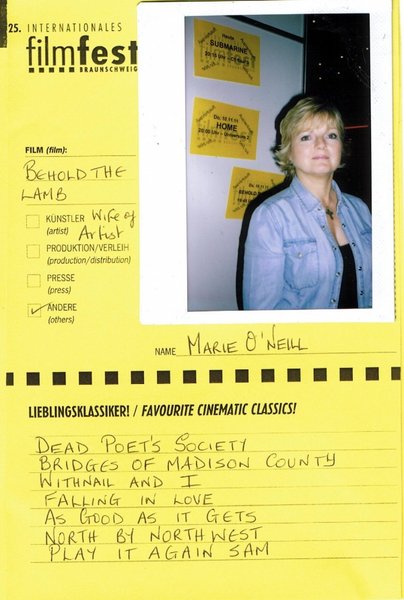 25. INTERNATIONALES
filmfest
BRAUNSCHWEIG
Heute
SUBMARINE
Do, 10.11.11
HOME
BEHOLD
FILM (film):
BEHOLD THE
LAMB
KÜNSTLER Wife of
(artist) Artist
PRODUKTION/VERLEIH
(production/distribution)
PRESSE
(press)
ANDERE
(others)
NAME MARIE O'NEILL
LIEBLINGSKLASSIKER! / FAVOURITE CINEMATIC CLASSICS!
DEAD POET'S SOCIETY
BRIDGES OF MADISON COUNTY
WITHNAIL AND I
FALLING IN LOVE
AS GOOD AS IT GETS
NORTH BY NORTHWEST
PLAY IT AGAIN SAM